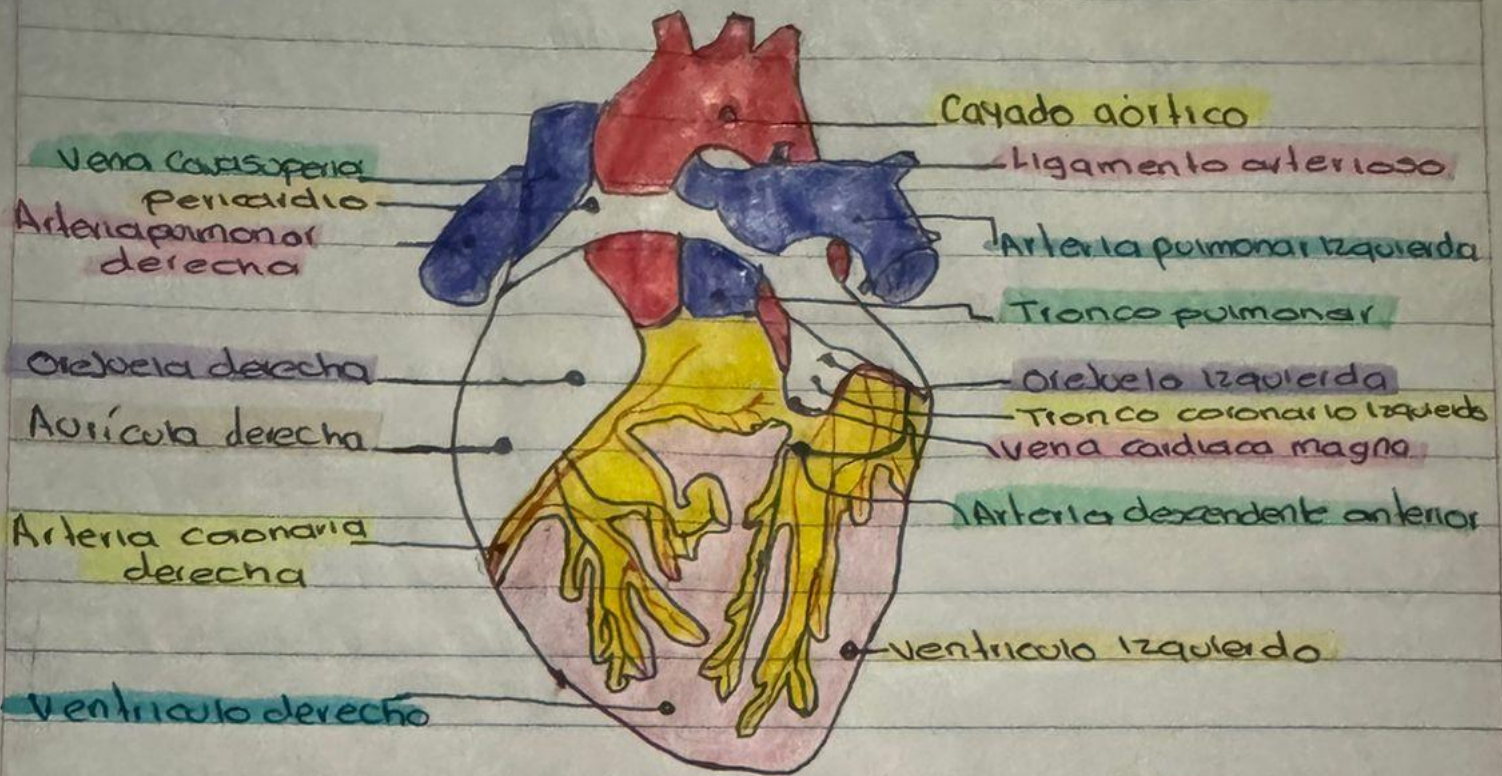 Vena Cavasuperia
Pericardio
Arteriapurmonar
derecha
Orejuela derecha
Aurícula derecha
Arteria caronaria
derecha
Ventriculo derecho
Cayado aórtico
Ligamento arterioso
Arteria pulmonar Izquierda
Tronco pulmonar
Orejuelo Izquierda
Tronco coronario Izquierdo
Vena cardiaca magna
Arteria descendente anterior
Ventriculo Izquierdo